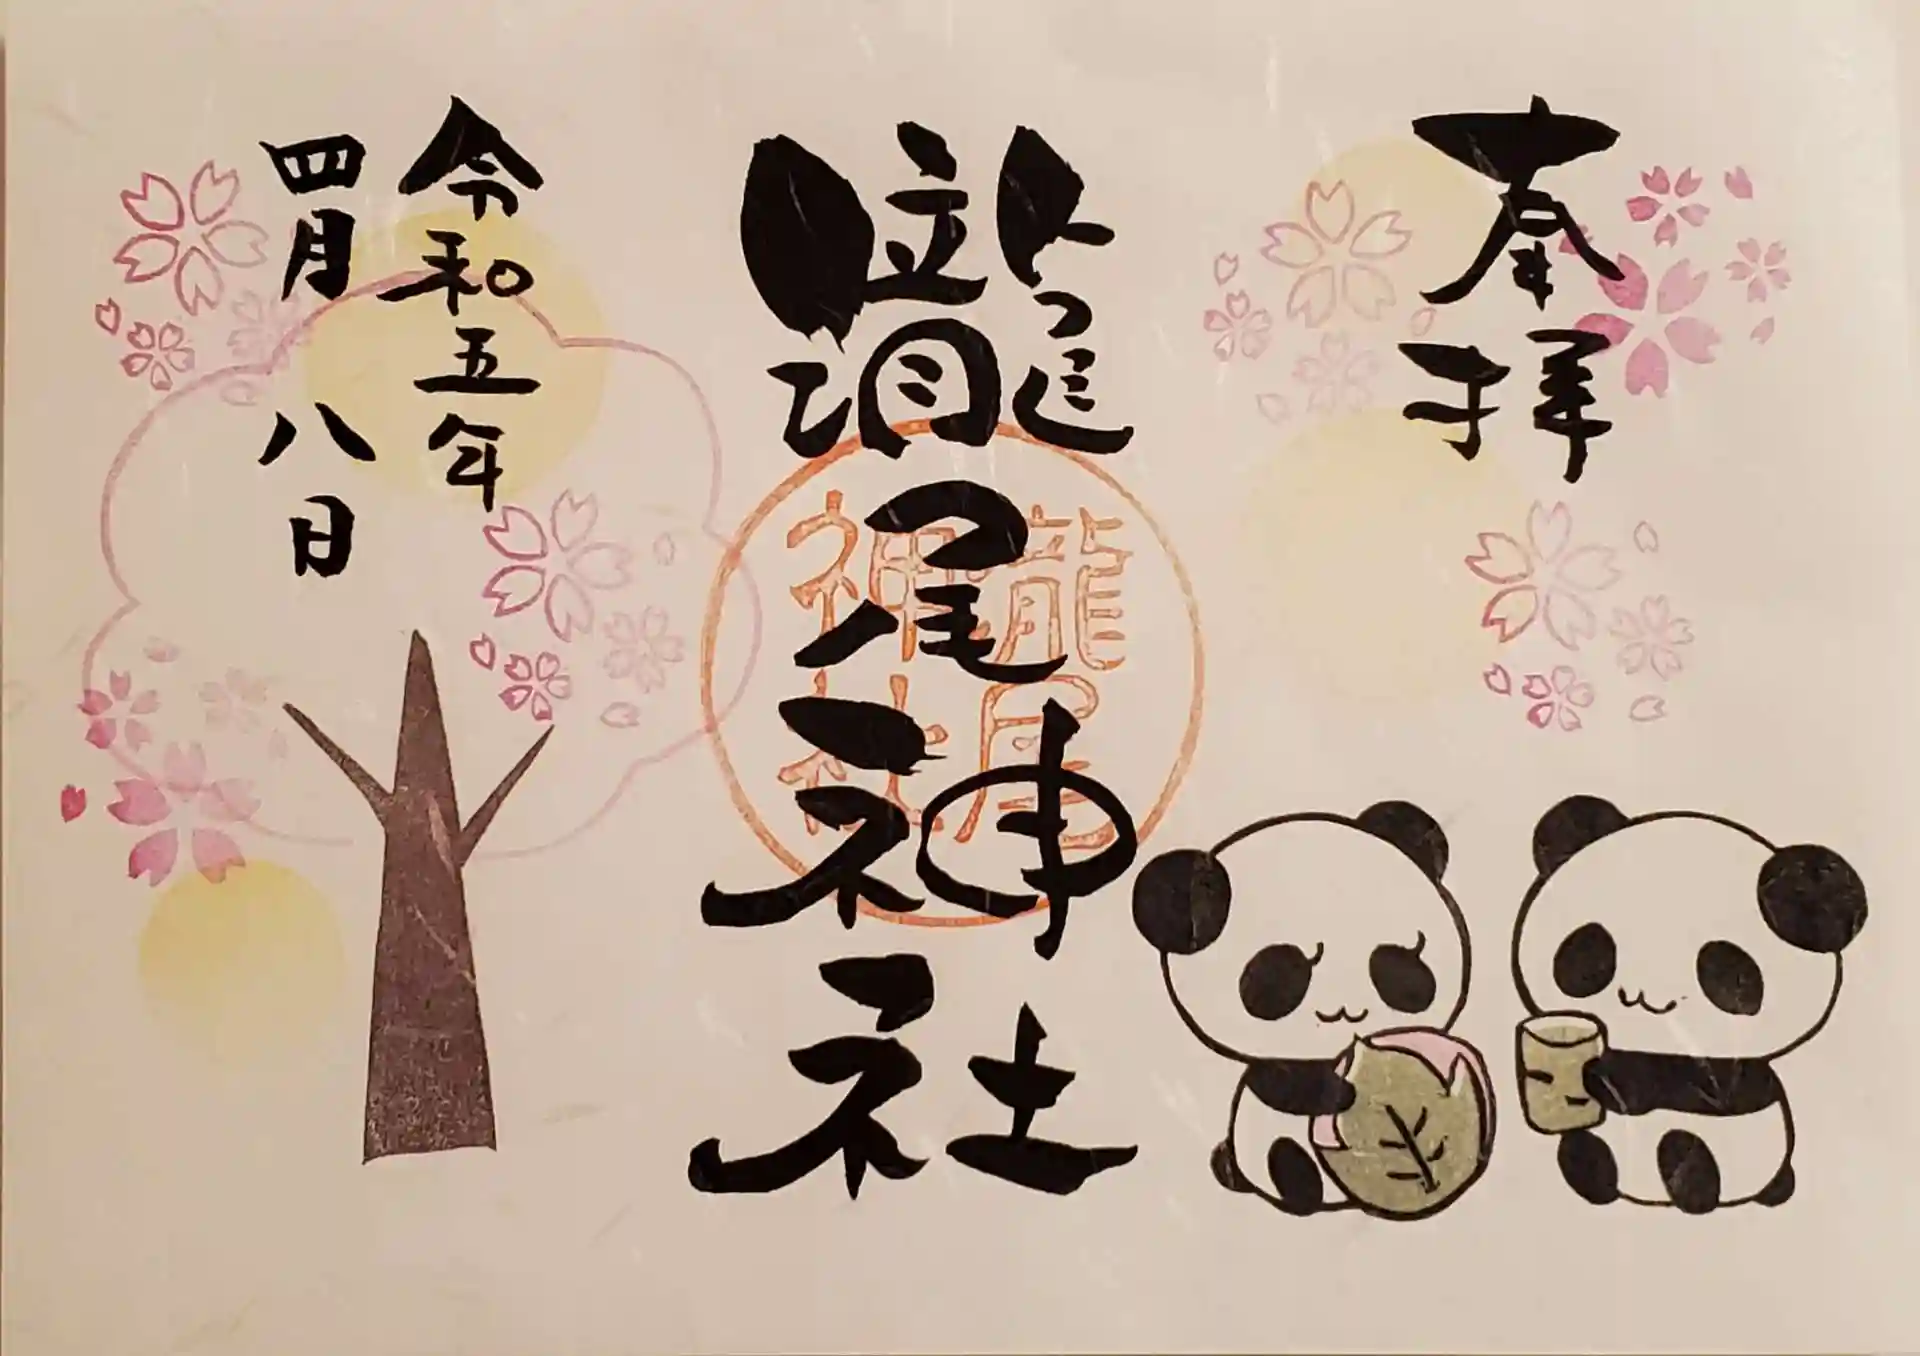 奉拝
瀧尾神社
瀧尾
神社
令和五年
四月八日